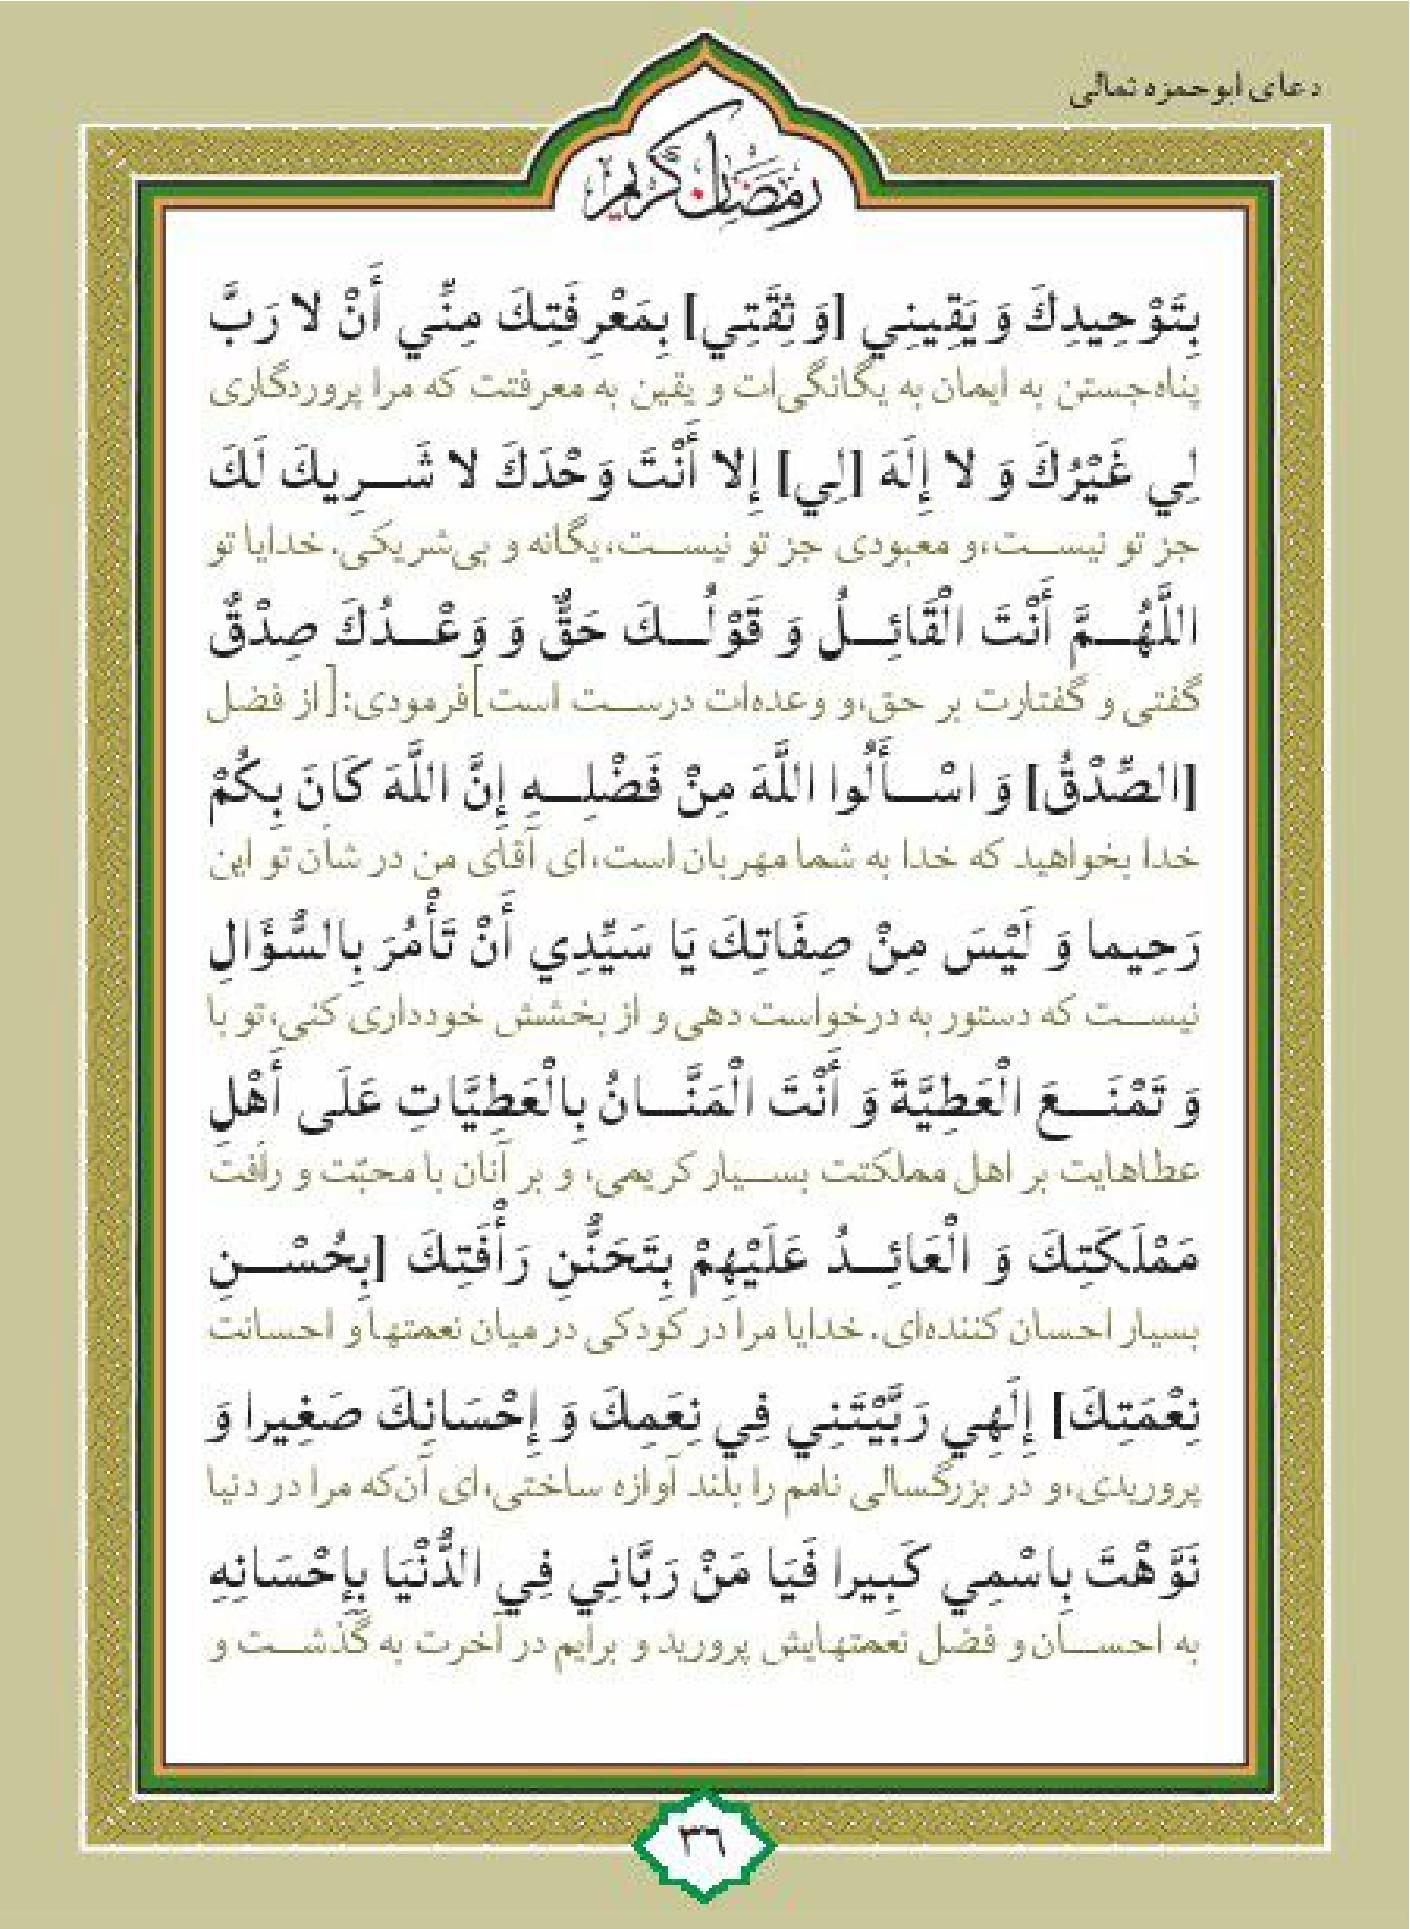 دعای ابوحمزه ثمالی
رمضان كريم
بِتَوْحِيدِكَ وَ يَقِينِي [وَ ثِقَتِي] بِمَعْرِفَتِكَ مِنِّي أَنْ لا رَبَّ
پناه‌جستن به ایمان به یگانگی‌ات و یقین به معرفتت که مرا پروردگاری
لِي غَيْرُكَ وَ لا إِلَهَ [لِي] إِلا أَنْتَ وَحْدَكَ لا شَـرِيكَ لَكَ
جز تو نیست،و معبودی جز تو نیست،یگانه و بی‌شریکی. خدایا تو
اللَّهُـمَّ أَنْتَ الْقَائِـلُ وَ قَوْلُـكَ حَقٌّ وَ وَعْـدُكَ صِدْقٌ
گفتی و گفتارت بر حق،و وعده‌ات درست است]فرمودی:[از فضل
[الصِّدْقُ] وَ اسْـأَلُوا اللَّهَ مِنْ فَضْلِـهِ إِنَّ اللَّهَ كَانَ بِكُمْ
خدا بخواهید که خدا به شما مهربان است،ای آقای من در شأن تو این
رَحِيما وَ لَيْسَ مِنْ صِفَاتِكَ يَا سَيِّدِي أَنْ تَأْمُرَ بِالسُّؤَالِ
نیست که دستور به درخواست دهی و از بخشش خودداری کنی،تو با
وَ تَمْنَـعَ الْعَطِيَّةَ وَ أَنْتَ الْمَنَّـانُ بِالْعَطِيَّاتِ عَلَى أَهْلِ
عطاهایت بر اهل مملکتت بسیار کریمی، و بر آنان با محبّت و رأفت
مَمْلَكَتِكَ وَ الْعَائِـدُ عَلَيْهِمْ بِتَحَنُّنِ رَأْفَتِكَ [بِحُسْـنِ
بسیار احسان کننده‌ای. خدایا مرا در کودکی در میان نعمتها و احسانت
نِعْمَتِكَ] إِلَهِي رَبَّيْتَنِي فِي نِعَمِكَ وَ إِحْسَانِكَ صَغِيرا وَ
پروریدی،و در بزرگسالی نامم را بلند آوازه ساختی،ای آن‌که مرا در دنیا
نَوَّهْتَ بِاسْمِي كَبِيرا فَيَا مَنْ رَبَّانِي فِي الدُّنْيَا بِإِحْسَانِهِ
به احسـان و فضل نعمتهایش پرورید و برایم در آخرت به گذشـت و
٣٦